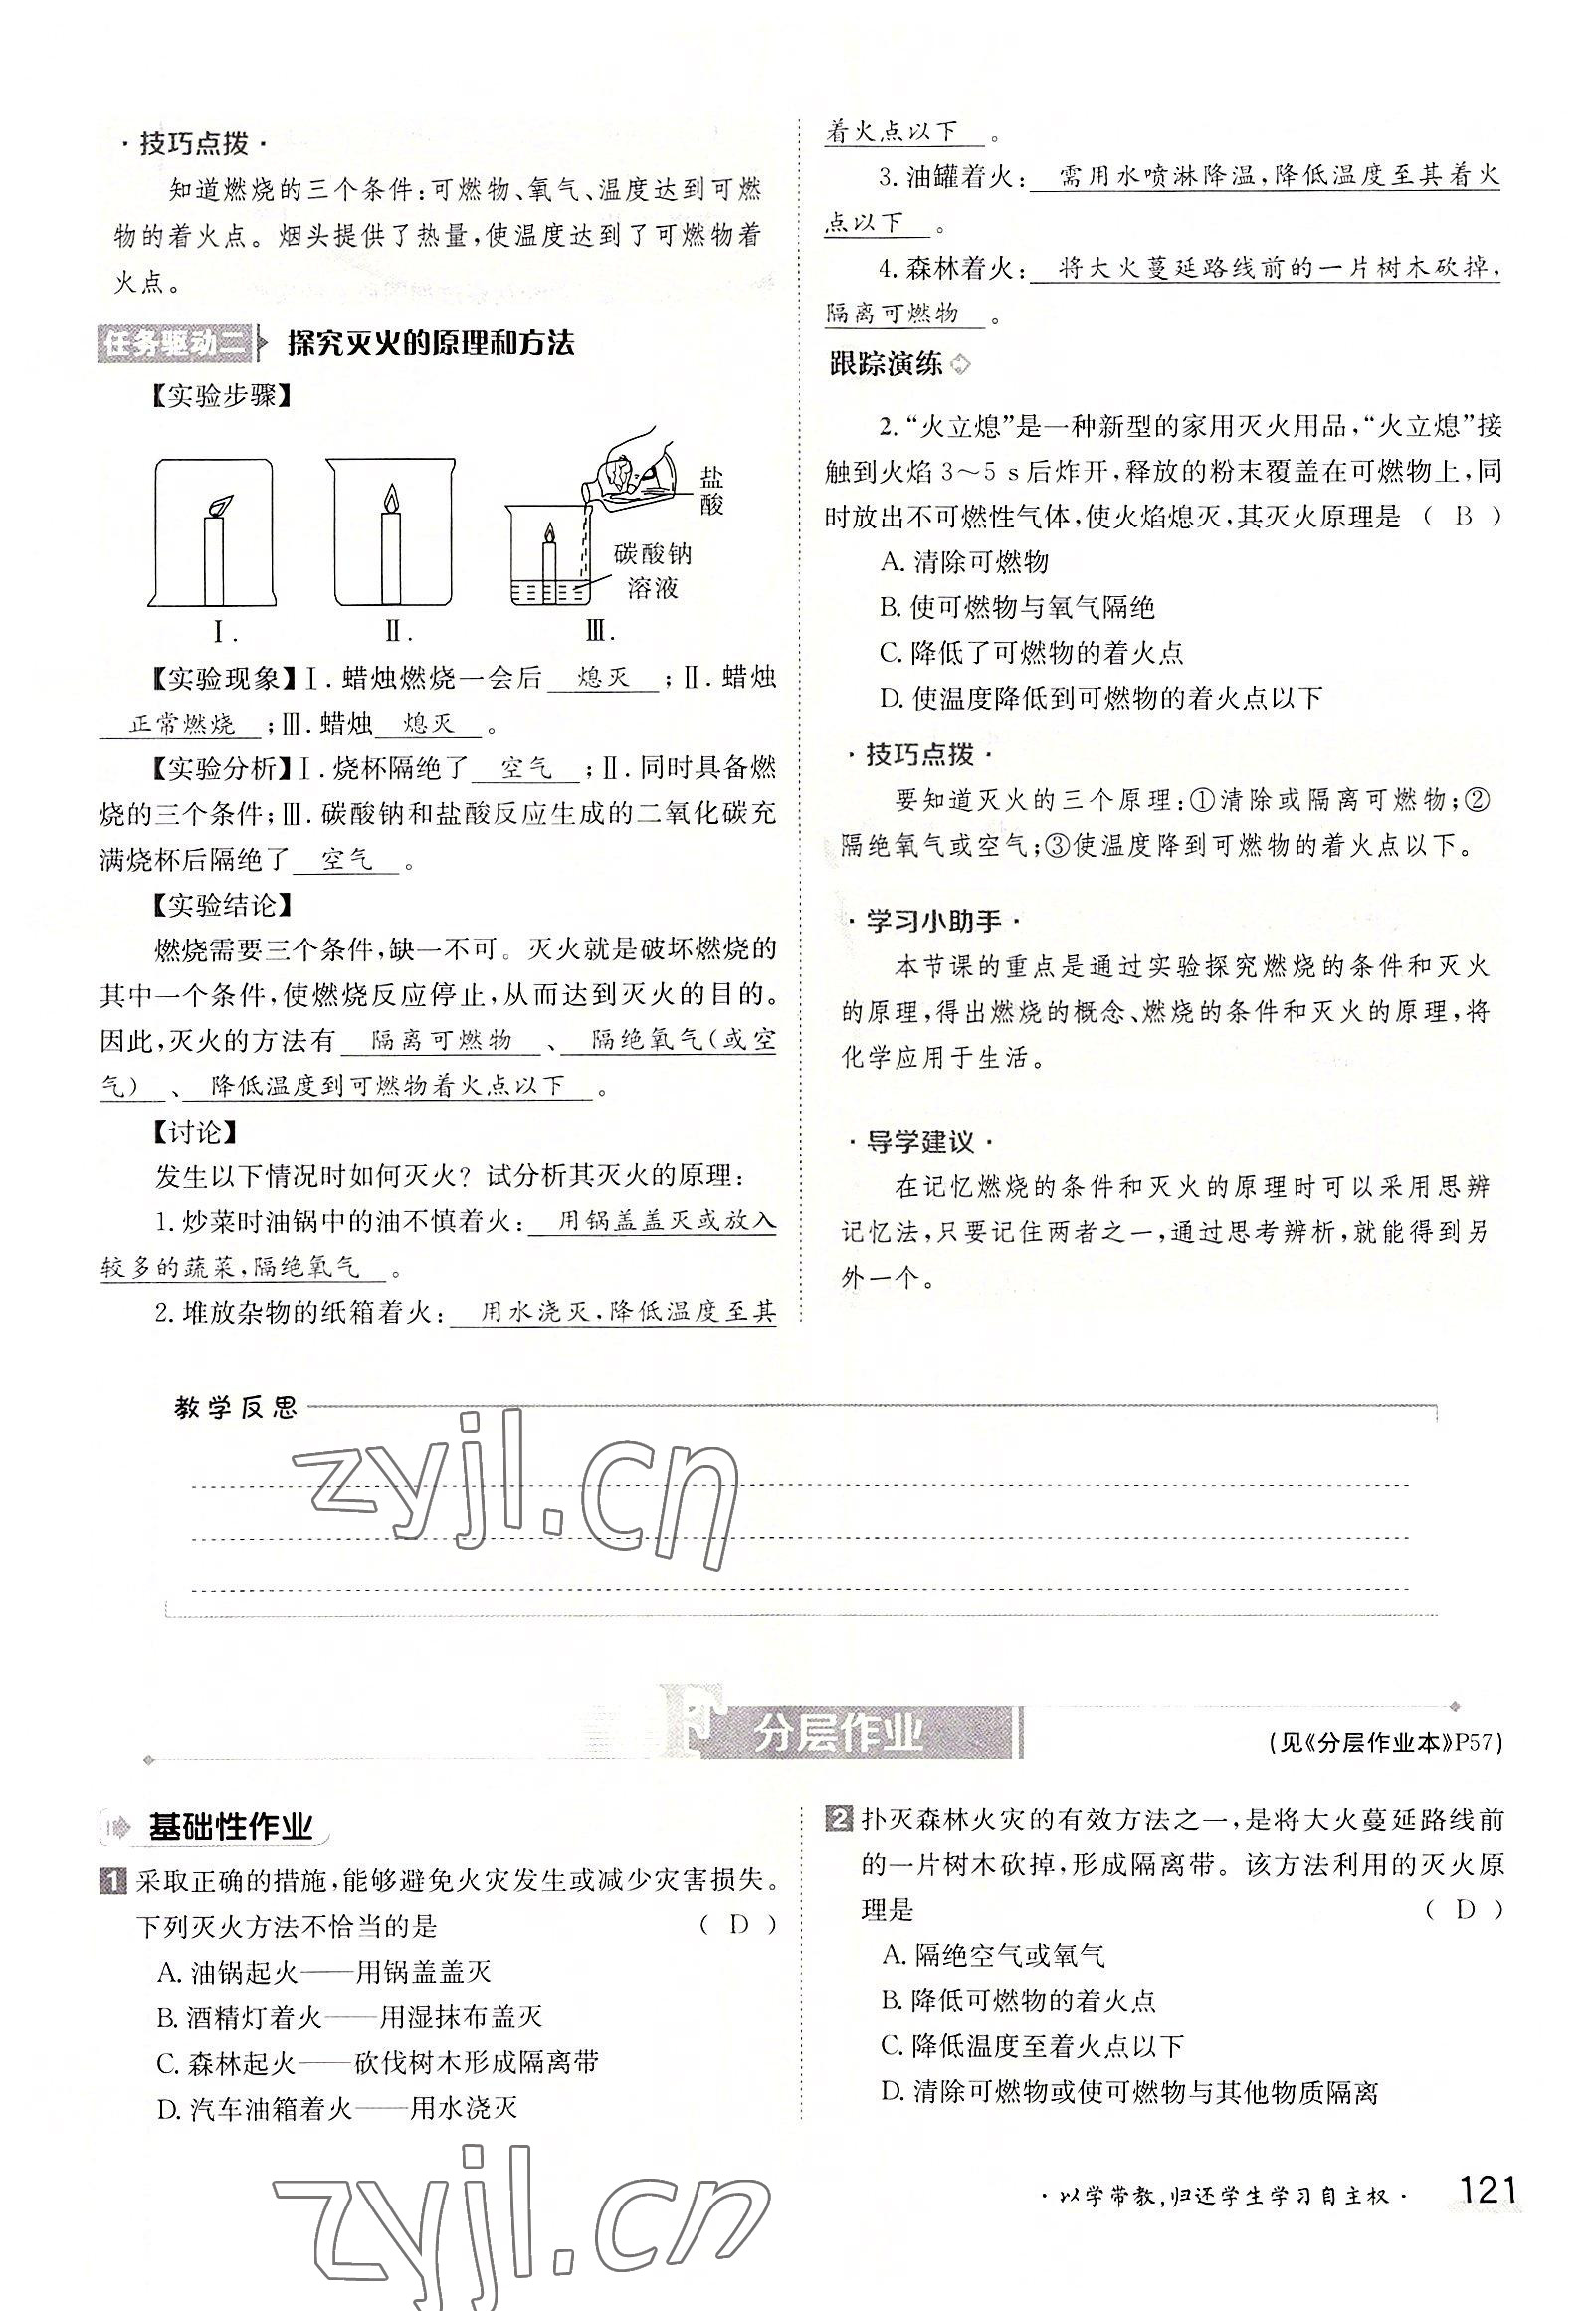 ·技巧点拨·
知道燃烧的三个条件:可燃物、氧气、温度达到可燃
物的着火点。烟头提供了热量,使温度达到了可燃物着
火点。
任务驱动二 探究灭火的原理和方法
【实验步骤】
盐酸
碳酸钠
溶液
Ⅰ. Ⅱ. Ⅲ.
【实验现象】Ⅰ.蜡烛燃烧一会后 熄灭 ;Ⅱ.蜡烛
正常燃烧 ;Ⅲ.蜡烛 熄灭 。
【实验分析】Ⅰ.烧杯隔绝了 空气 ;Ⅱ.同时具备燃
烧的三个条件;Ⅲ.碳酸钠和盐酸反应生成的二氧化碳充
满烧杯后隔绝了 空气 。
【实验结论】
燃烧需要三个条件,缺一不可。灭火就是破坏燃烧的
其中一个条件,使燃烧反应停止,从而达到灭火的目的。
因此,灭火的方法有 隔离可燃物 、 隔绝氧气(或空
气) 、 降低温度到可燃物着火点以下 。
【讨论】
发生以下情况时如何灭火?试分析其灭火的原理:
1.炒菜时油锅中的油不慎着火: 用锅盖盖灭或放入
较多的蔬菜,隔绝氧气 。
2.堆放杂物的纸箱着火: 用水浇灭,降低温度至其
着火点以下 。
3.油罐着火: 需用水喷淋降温,降低温度至其着火
点以下 。
4.森林着火: 将大火蔓延路线前的一片树木砍掉,
隔离可燃物 。
跟踪演练
2.“火立熄”是一种新型的家用灭火用品,“火立熄”接
触到火焰3~5 s后炸开,释放的粉末覆盖在可燃物上,同
时放出不可燃性气体,使火焰熄灭,其灭火原理是 ( B )
A.清除可燃物
B.使可燃物与氧气隔绝
C.降低了可燃物的着火点
D.使温度降低到可燃物的着火点以下
·技巧点拨·
要知道灭火的三个原理:①清除或隔离可燃物;②
隔绝氧气或空气;③使温度降到可燃物的着火点以下。
·学习小助手·
本节课的重点是通过实验探究燃烧的条件和灭火
的原理,得出燃烧的概念、燃烧的条件和灭火的原理,将
化学应用于生活。
·导学建议·
在记忆燃烧的条件和灭火的原理时可以采用思辨
记忆法,只要记住两者之一,通过思考辨析,就能得到另
外一个。
教学反思
zyjl.cn
分层作业
(见《分层作业本》P57)
基础性作业
1 采取正确的措施,能够避免火灾发生或减少灾害损失。
下列灭火方法不恰当的是 ( D )
A.油锅起火——用锅盖盖灭
B.酒精灯着火——用湿抹布盖灭
C.森林起火——砍伐树木形成隔离带
D.汽车油箱着火——用水浇灭
2 扑灭森林火灾的有效方法之一,是将大火蔓延路线前
的一片树木砍掉,形成隔离带。该方法利用的灭火原
理是 ( D )
A.隔绝空气或氧气
B.降低可燃物的着火点
C.降低温度至着火点以下
D.清除可燃物或使可燃物与其他物质隔离
zyjl.cn
·以学带教,归还学生学习自主权· 121